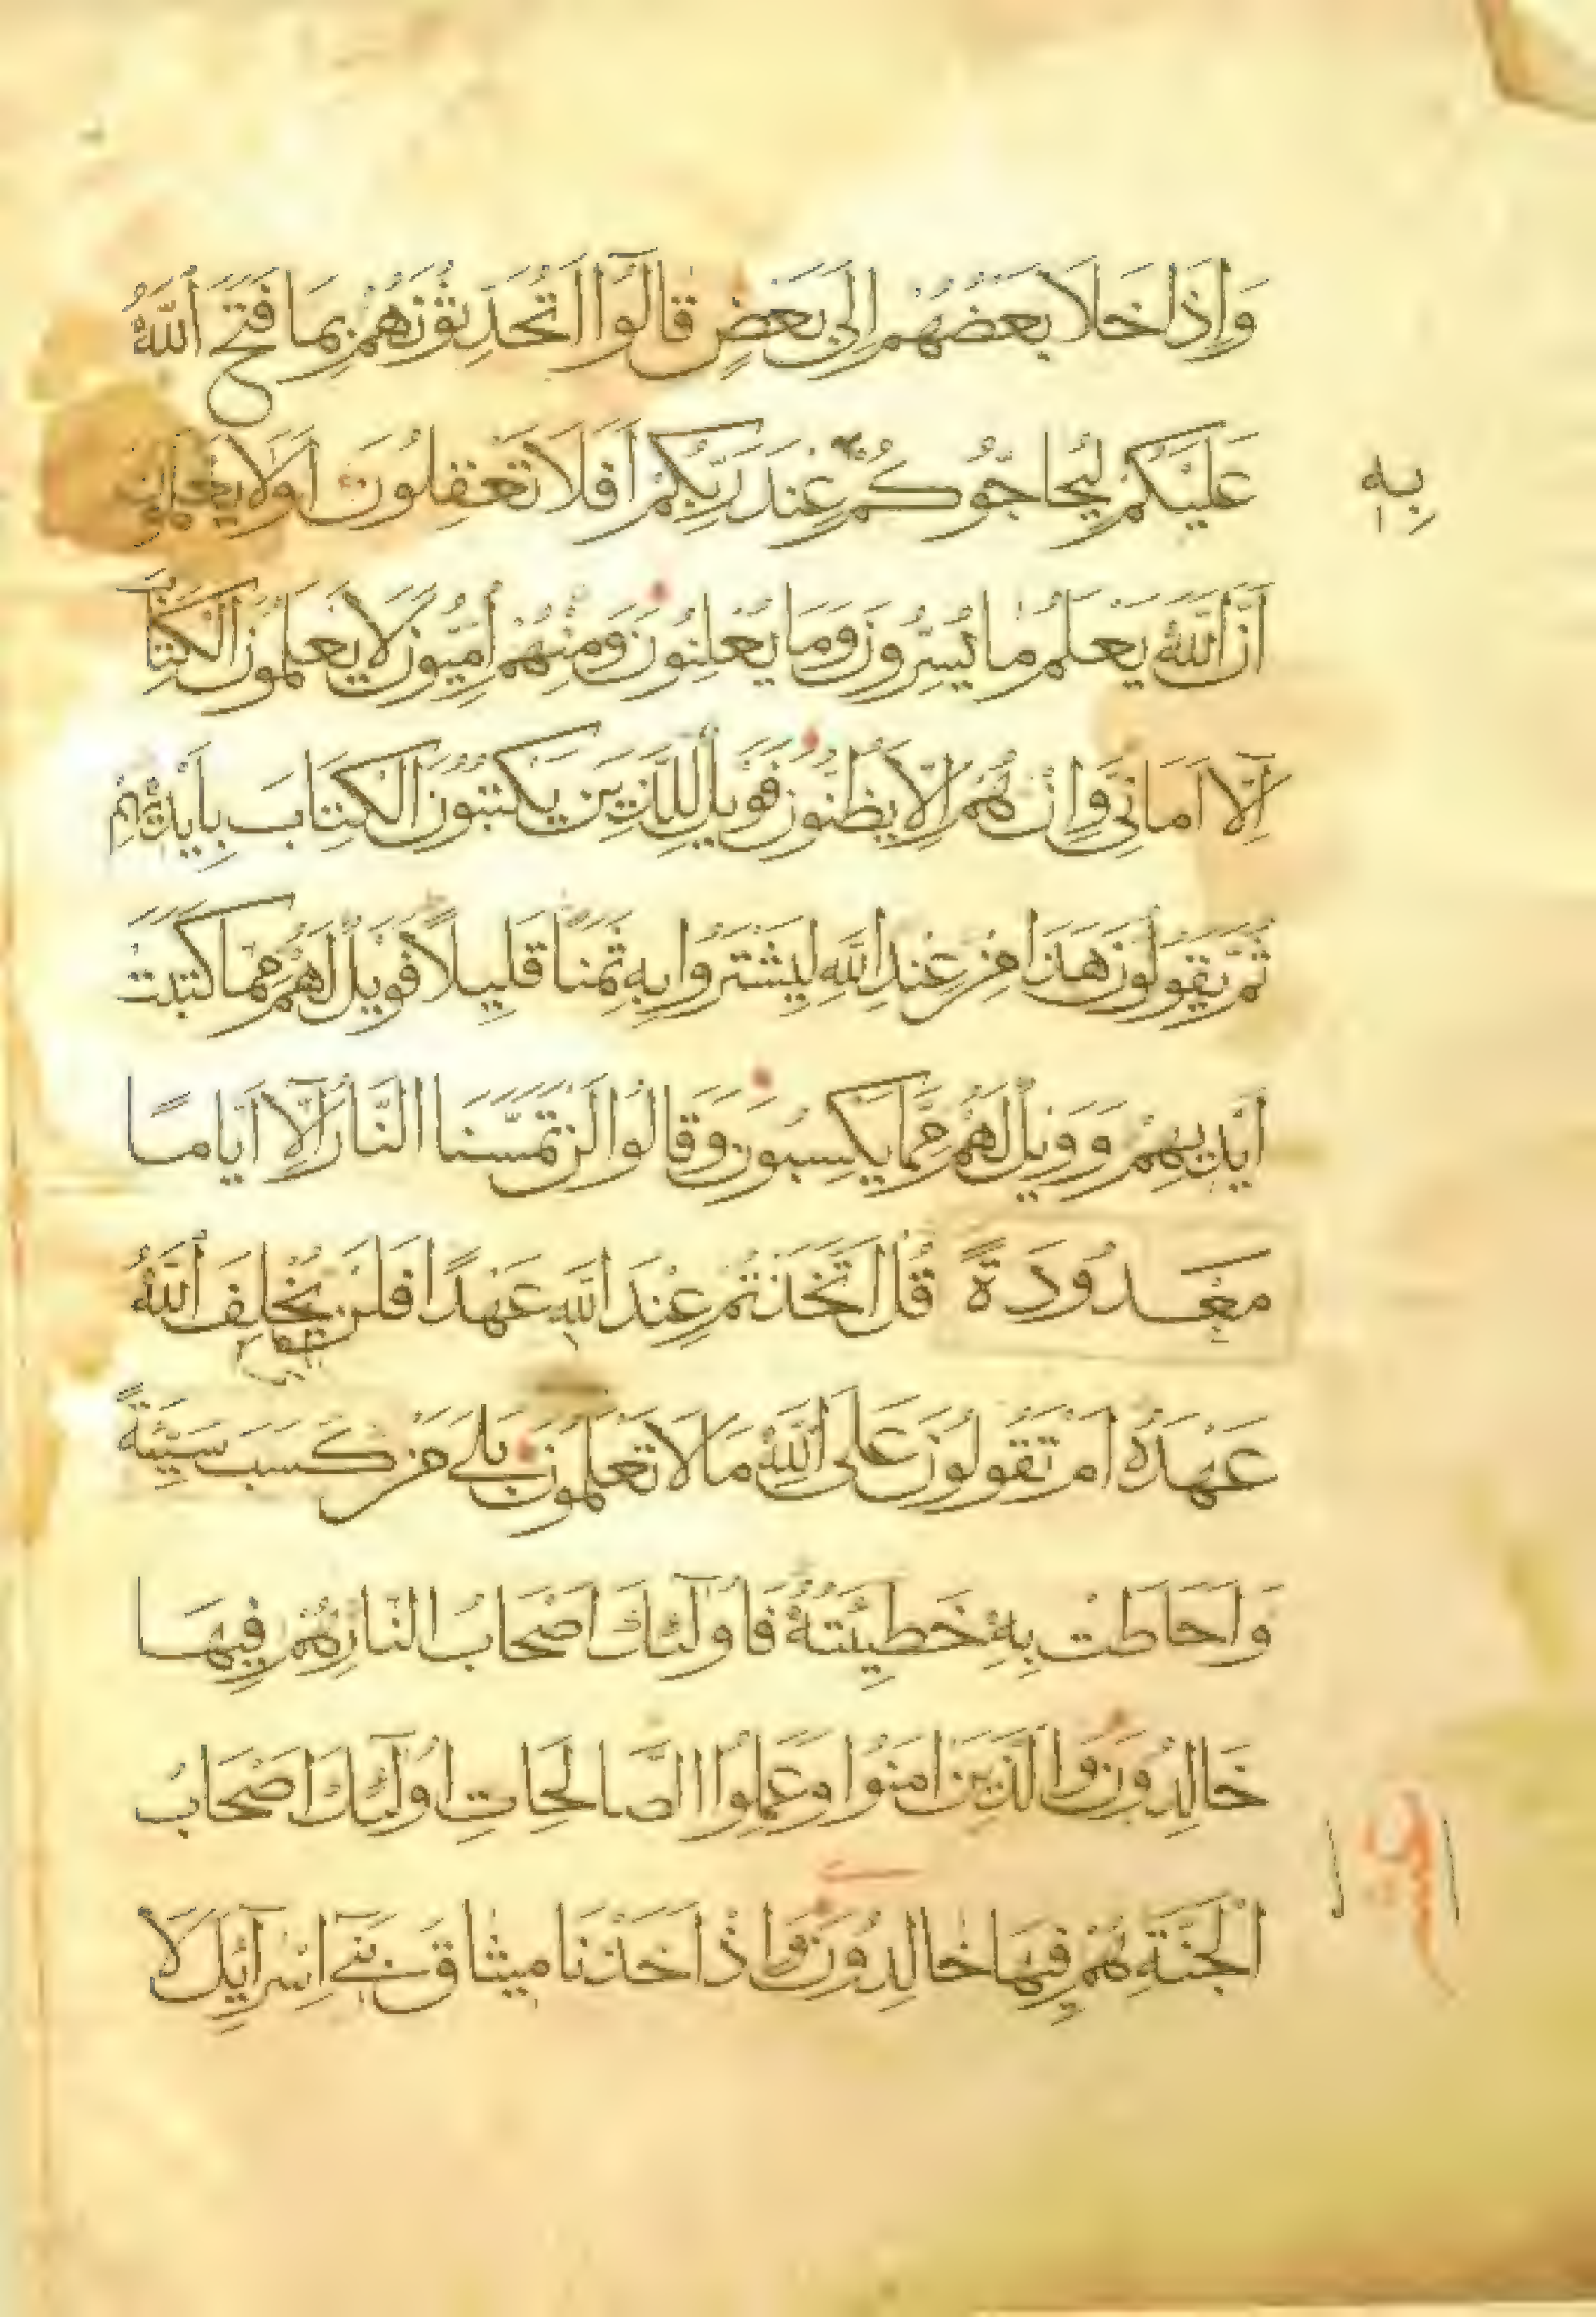 وَإِذَا خَلَا بَعْضُهُمْ إِلَى بَعْضٍ قَالُوٓا اَتُحَدِّثُونَهُمْ بِمَا فَتَحَ اللَّهُ
عَلَيْكُمْ لِيُحَاجُّوكُمْ عِنْدَ رَبِّكُمْ اَفَلَا تَعْقِلُونَ اَوَلَا يَعْلَمُونَ
بِهِ
اَنَّ اللَّهَ يَعْلَمُ مَا يُسِرُّونَ وَمَا يُعْلِنُونَ وَمِنْهُمْ أُمِّيُّونَ لَا يَعْلَمُونَ الْكِتَابَ
اِلَّآ اَمَانِيَّ وَاِنْ هُمْ اِلَّا يَظُنُّونَ فَوَيْلٌ لِلَّذِينَ يَكْتُبُونَ الْكِتَابَ بِاَيْدِيهِمْ
ثُمَّ يَقُولُونَ هَذَا مِنْ عِنْدِ اللَّهِ لِيَشْتَرُوا بِهِ ثَمَنًا قَلِيلًا فَوَيْلٌ لَهُمْ مِمَّا كَتَبَتْ
اَيْدِيهِمْ وَوَيْلٌ لَهُمْ مِمَّا يَكْسِبُونَ وَقَالُوا لَنْ تَمَسَّنَا النَّارُ اِلَّآ اَيَّامًا
مَعْدُودَةً قُلْ اَتَّخَذْتُمْ عِنْدَ اللَّهِ عَهْدًا فَلَنْ يُخْلِفَ اللَّهُ
عَهْدَهُ اَمْ تَقُولُونَ عَلَى اللَّهِ مَا لَا تَعْلَمُونَ بَلَى مَنْ كَسَبَ سَيِّئَةً
وَاَحَاطَتْ بِهِ خَطِيئَتُهُ فَاُولَٓئِكَ اَصْحَابُ النَّارِ هُمْ فِيهَا
خَالِدُونَ وَالَّذِينَ اٰمَنُوا وَعَمِلُوا الصَّالِحَاتِ اُولَٓئِكَ اَصْحَابُ
الْجَنَّةِ هُمْ فِيهَا خَالِدُونَ وَاِذْ اَخَذْنَا مِيثَاقَ بَنِٓي اِسْرَآئِلَ لَا